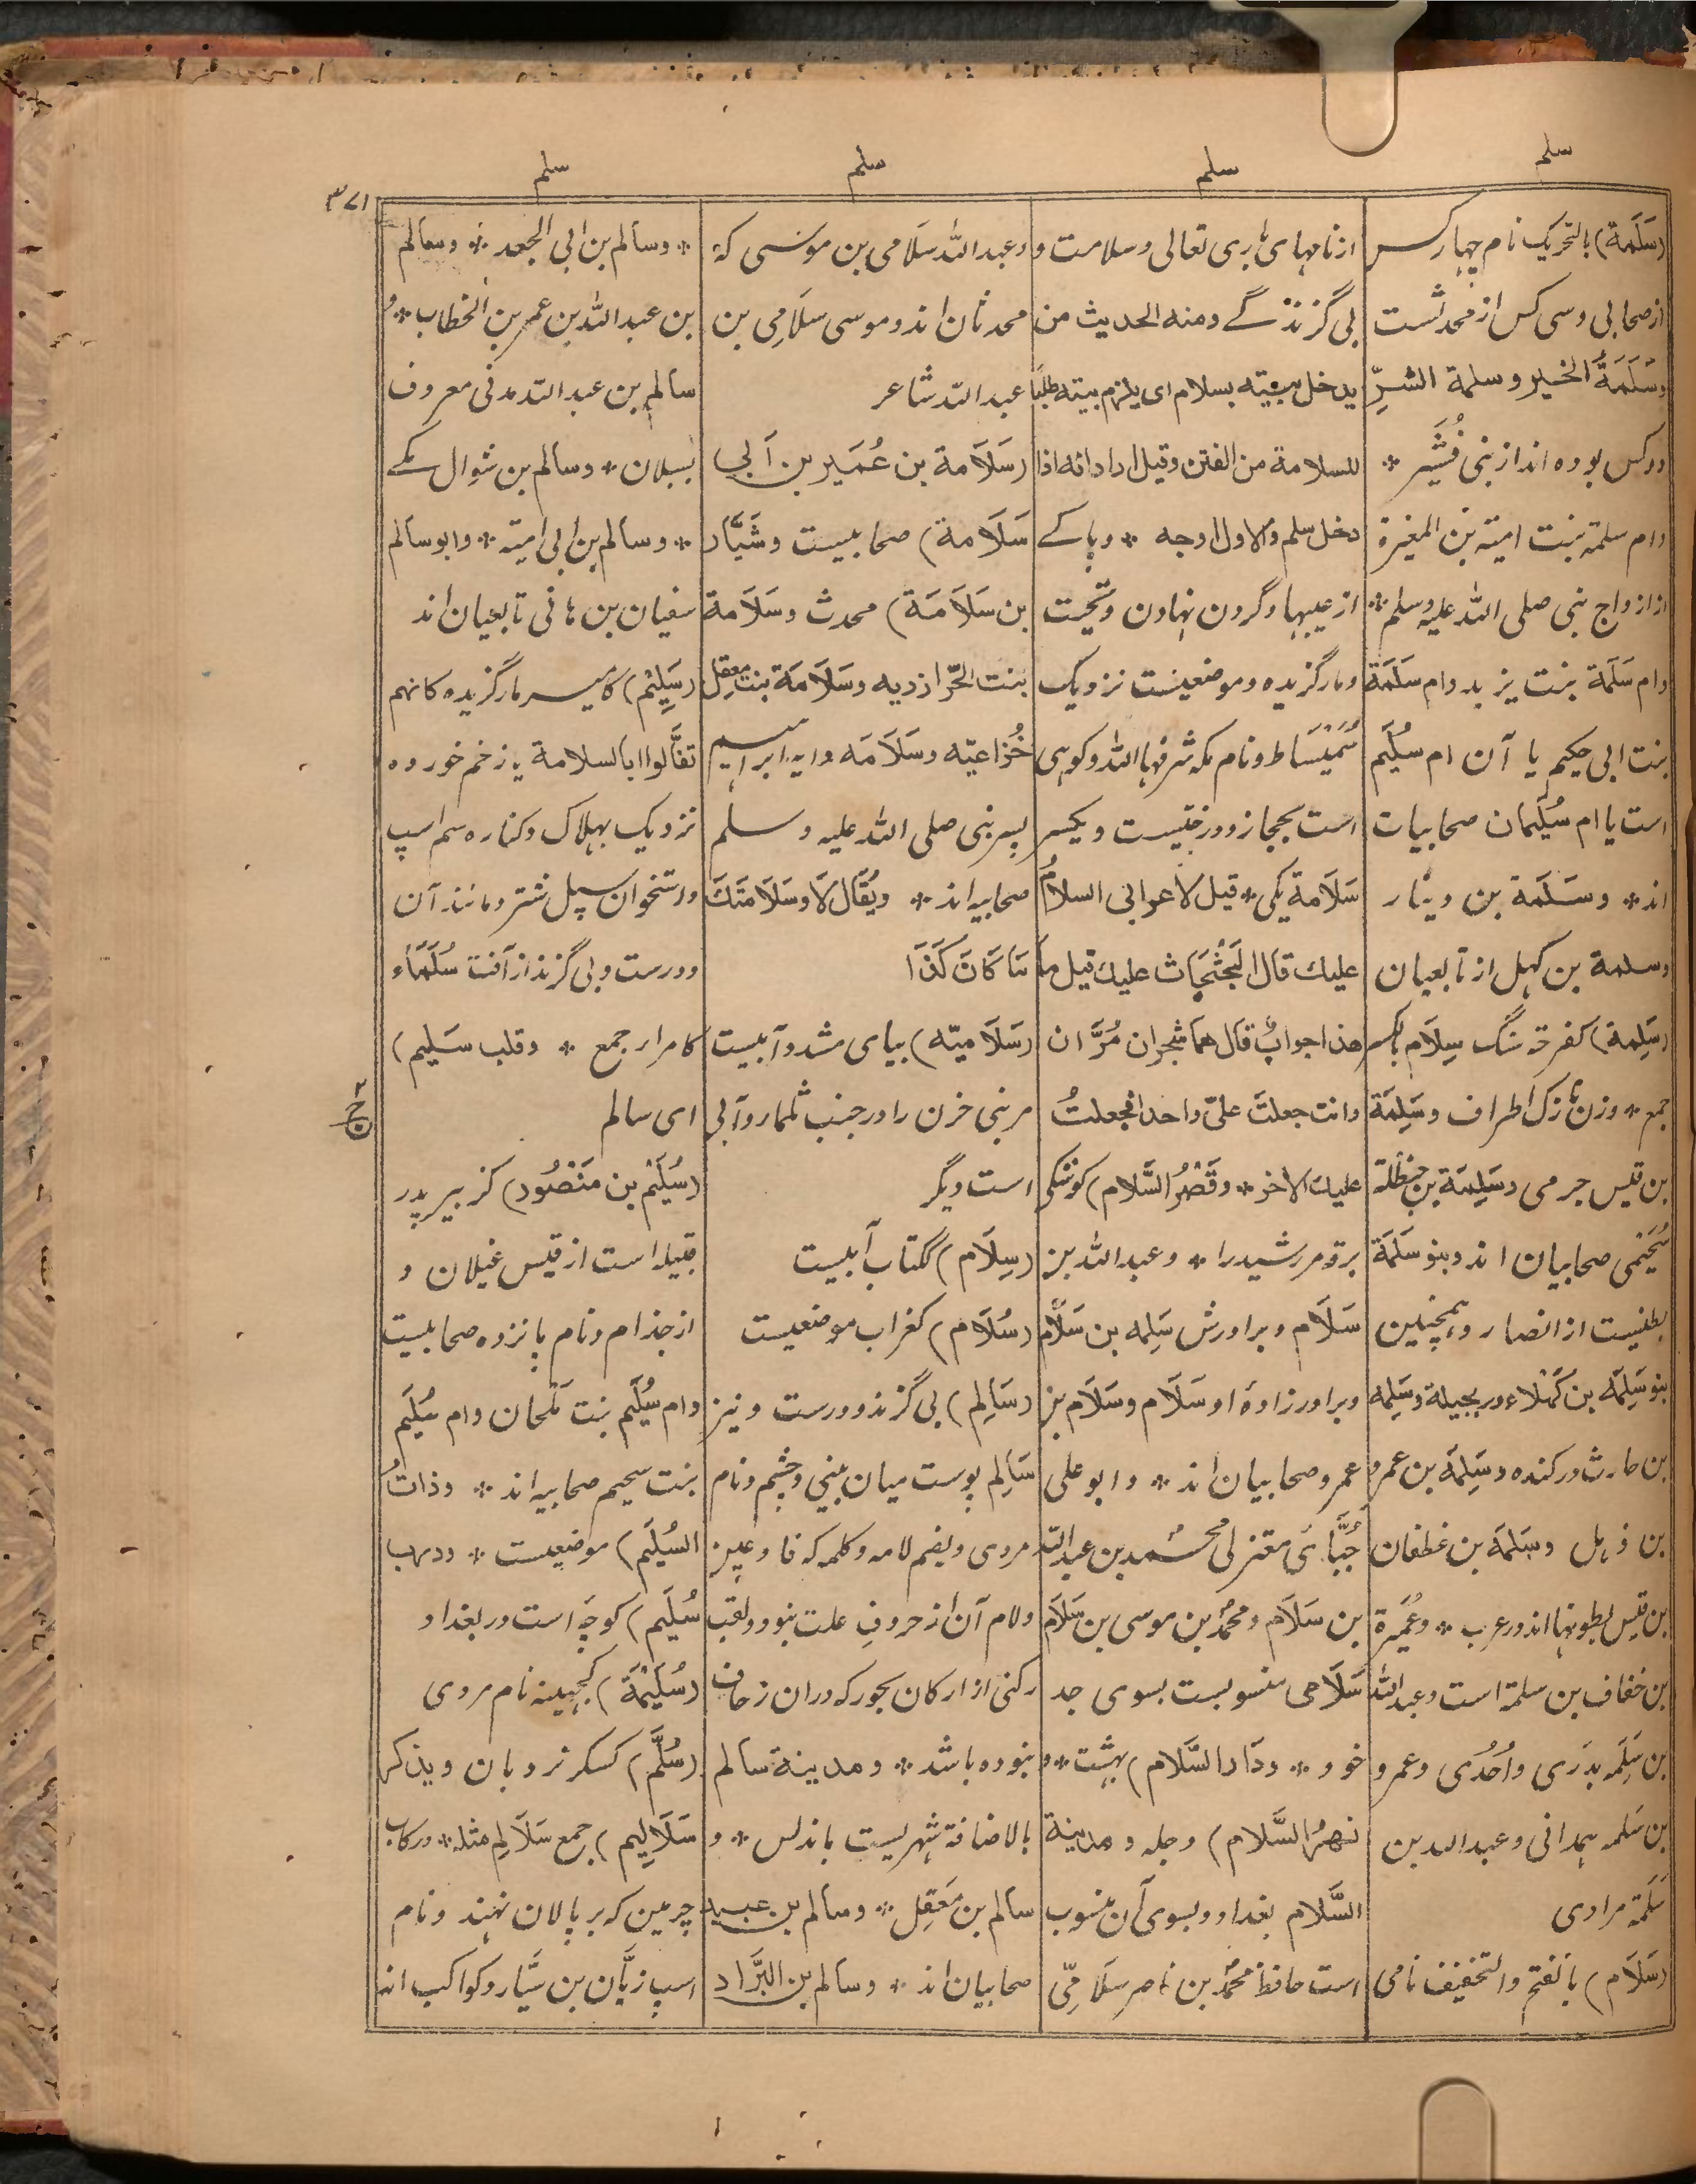 سلم
سلم
سلم
سلم
۳۷۱
(سَلَمَة) بالتحریک نام چهارکس
از صحابی و سی کس از محدثست
وسَلَمَةُ الخیر و سلمة الشرِّ
دو کس بوده اند از بنی قُشَیر *
و ام سلمة بنت امیة بن المغیرة
از ازواج نبی صلی الله علیه وسلم *
و ام سَلَمَة بنت یزید و ام سَلَمَة
بنت ابی حکیم یا آن ام سُلَیم
است یا ام سُلَیمان صحابیات
اند * و سَلَمة بن دینار
و سلمة بن کهیل از تابعیان
(سَلِمة) کفرحة سنگ سِلَام بالکسر
جمع * و زن نازک اطراف و سَلِمَة
بن قیس جرمی و سَلِمَة بن حنظلة
سُحَیمی صحابیان اند و بنو سَلَمَة
بطنیست از انصار و همچنین
بنو سَلِمَه بن کَهلاء در بجیلة و سَلِمه
بن حارث در کنده و سَلِمَة بن عمرو
بن ذهل و سَلَمَة بن غطفان
بن قیس بطونها اند در عرب * و عُمَیرة
بن خفاف بن سلمة است و عبد الله
بن سَلِمَه بدری و اُحُدی و عمرو
بن سَلمه همدانی و عبد الله بن
سَلَمَة مرادی
(سَلَام) بالفتح و التخفیف نامی
از نامهای باری تعالی و سلامت و
بی گزندگے و منه الحدیث من
یدخل بیته بسلام ای یلزم بیته طلبا
للسلامة من الفتن و قیل اراد انه اذا
دخل سلم والاول اوجه * و پاکے
از عیبها و گردن نهادن و تحیت
و مار گزیده و موضعیست نزدیک
سُمَیْسَاط و نام مکه شرفها الله و کوهی
است بحجاز و درختیست و یکسر
سَلَامة یکی * قیل لاعرابی السلامُ
علیک قال الجَثْجَاث علیک قیل ما
هذا جوابٌ قال هما شجران مُرَّان
وانت جعلتَ علیّ واحدا فجعلتُ
علیک الآخر * و قَصْرُ السَّلام) کوشکی
برقه مر رشید را * و عبد الله بن
سَلَام و برادرش سَلِمه بن سَلَام
و برادر زادهٔ او سَلَام و سَلَام بن
عمرو صحابیان اند * و ابو علی
جُبَّائی معتزلی محمد بن عبد الله
بن سَلَام و محمد بن موسی بن سَلَام
سَلَامی منسوبست بسوی جد
خود * و دَار السَّلام) بهشت * و
نهرُ السَّلام) دجله و مدینة
السَّلام بغداد و بسوی آن منسوب
است حافظ محمد بن ناصر سَلَامِّی
و عبد الله سَلَامی بن موسی که
محدثان اند و موسی سَلَامِی بن
عبد الله شاعر
(سَلَامة بن عُمَیر بن اَبی
سَلَامة) صحابیست و سَیَّار
بن سَلَامَة) محدث و سَلَامة
بنت الحرّ ازدیه و سَلَامَة بنت معقِل
خُزاعیّه و سَلَامَه دایه ابراهیم
پسر نبی صلی الله علیه وسلم
صحابیه اند * و یُقَال لَا وسَلَامَتِکَ
مَا کَانَ کَذَا
(سَلَامیّه) بیای مشدد آبیست
مر بنی حزن را در جنب ثلماء و آبی
است دیگر
(سِلَام) ککتاب آبیست
(سُلَام) کغراب موضعیست
(سَالِم) بی گزند و درست و نیز
سَالِم پوست میان بینی و چشم و نام
مردی و بضم لامه و کلمه که فا و عین
و لام آن از حروفِ علت نبود و لقب
رکنی از ارکان بحور که دران زحاف
نبوده باشد * و مدینة سالم
بالاضافة شهریست باندلس * و
سالم بن مَعقِل * و سالم بن عبید
صحابیان اند * و سالم بن البَرَّاد
* و سالم بن ابی الجعد * و سالم
بن عبد الله بن عمر بن الخطاب * و
سالم بن عبد الله مدنی معروف
بسبلان * و سالم بن شوال مکے
* و سالم بن ابی امیة * و ابو سالم
سفیان بن هانی تابعیان اند
(سَلِیْم) کامیر مار گزیده کانهم
تفَاَّلوا بالسلامة یا زخم خورده
نزدیک بهلاک و کناره سم اسپ
و استخوان سپل شتر و مانند آن
و درست و بی گزند از آفت سُلَمَاء
کامراء جمع * و قلب سَلیم)
ای سالم
(سُلَیْم بن مَنْصُور) کزبیر پدر
قبیله است از قیس عیلان و
از جذام و نام پانزده صحابیست
و ام سُلَیم بنت مَلحان و ام سُلَیم
بنت سحیم صحابیه اند * و ذاتُ
السُلَیَم) موضعیست * و درب
سُلَیم) کوچه است در بغداد
(سُلَیْمَة) کجهینه نام مردی
(سُلَّم) کسکر نردبان و یذکر
سَلَالِیم) جمع سَلَالِم مثله * و رکاب
چرمین که بر پالان نهند و نام
اسپ زبَّان بن سَیَّار و کواکب اند
ج